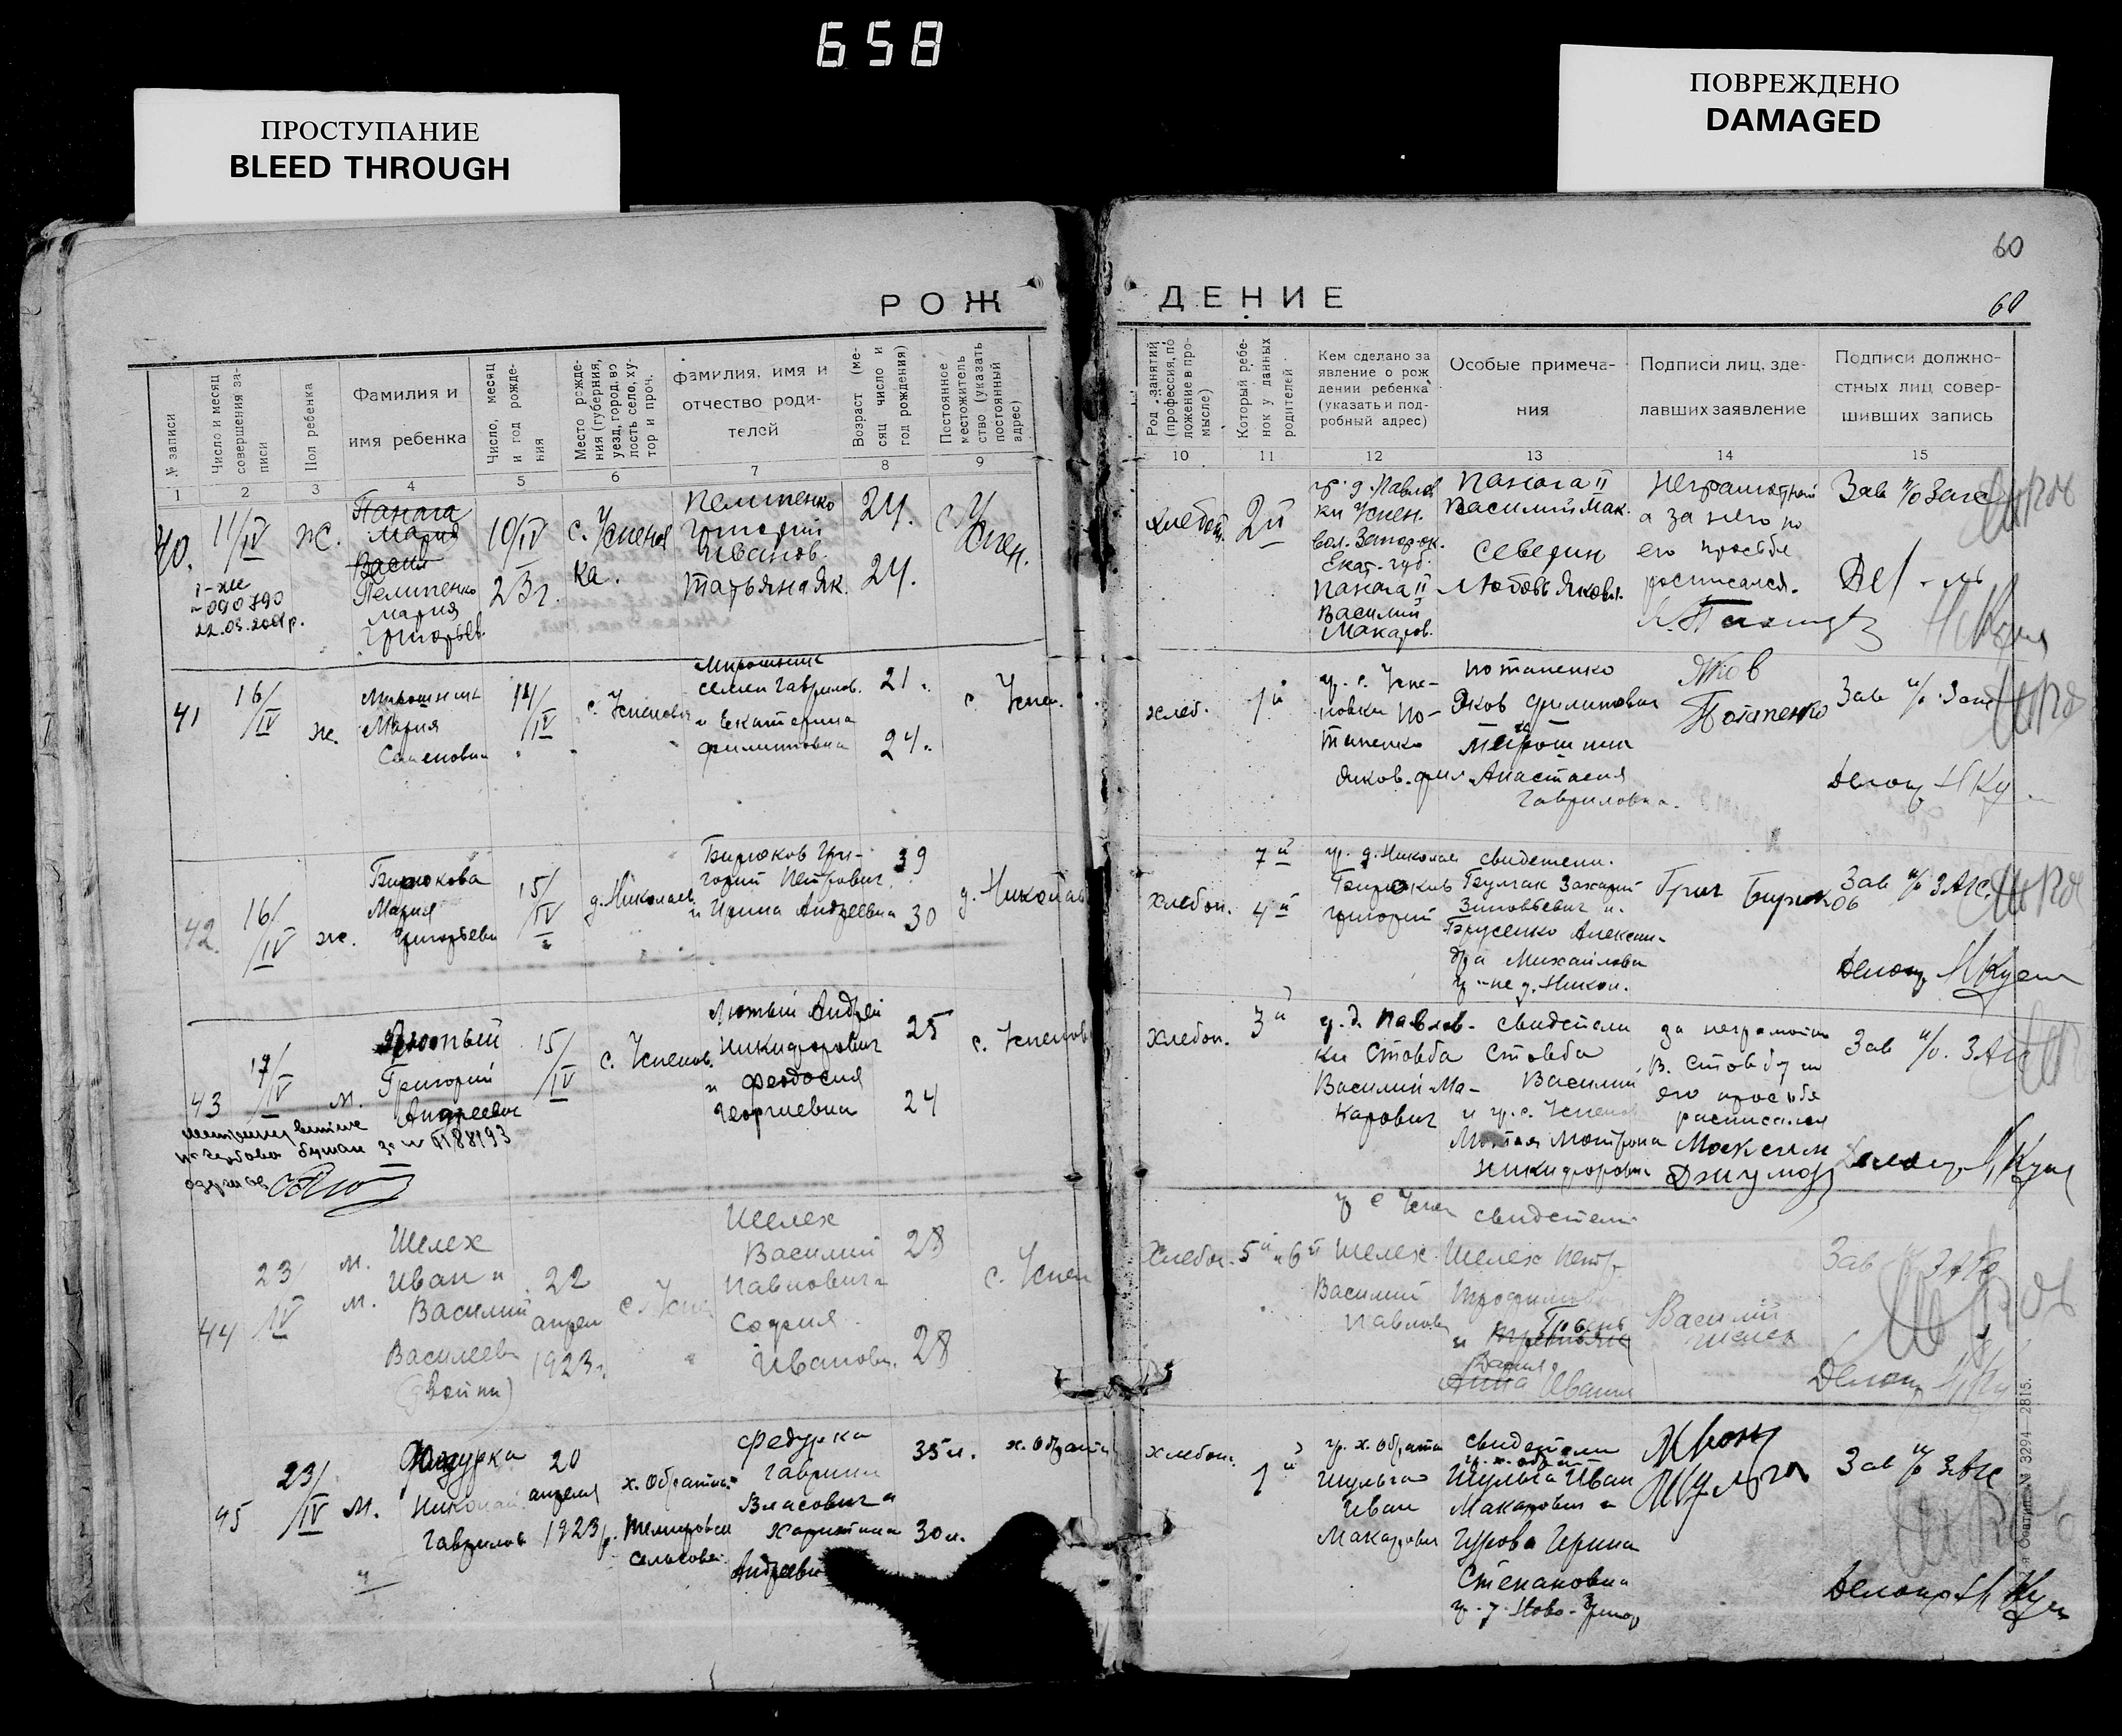 658
ПРОСТУПАНИЕ
BLEED THROUGH
ПОВРЕЖДЕНО
DAMAGED
60
60
РОЖДЕНИЕ
№ записи
Число и месяц совершения записи
Пол ребенка
Фамилия и
имя ребенка
Число, месяц и год рождения
Место рождения (губерния, уезд, город, волость село, хутор и проч.
фамилия, имя и
отчество роди-
телей
Возраст (месяц число и год рождения)
Постоянное местожительство (указать постоянный адрес)
Род занятий (профессия, положение в промысле)
Который ребенок у данных родителей
Кем сделано за
явление о рож
дении ребенка
(указать и под-
робный адрес)
Особые примеча-
ния
Подписи лиц, зде-
лавших заявление
Подписи должно-
стных лиц совер-
шивших запись
1 2 3 4 5 6 7 8 9 10 11 12 13 14 15
40.
11/IV
ж.
Панага
Мария
Васил
Пелипенко
Мария
Григорьев.
10/IV
23г.
с. Успенов
ка.
Пелипенко
Григорий
Иванов.
Татьяна Як.
24.
24.
с. Успен.
22.03.2001р.
хлебоп.
2й
гр. д. Павлов
ки Успен.
вол. Запорож.
Екат. губ.
Панага II
Василий
Макаров.
Панага II
Василий Мак.
Северин
Любовь Яковл.
Неграмотный
а за него по
его просьбе
росписался.
Зав п/о Загс
41
16/IV
ж.
Мирошник
Мария
Семеновна
14/IV
с. Успеновка
Мирошник
Семен Гаврилов.
и Екатерина
Филипповна
21.
24.
с. Успен.
хлеб.
1й
гр. с. Успе-
новки По-
тапенко
Яков. Фил.
Потапенко
Яков Филипович
и
Мирошник
Анастасия
Гавриловна.
Яков
Потапенко
Зав п/о Загс
Делопр Н Ку
42
16/IV
ж.
Бирюкова
Мария
Григорьевн
15/IV
д. Николаев
Бирюков Гри-
горий Петрович
и Ирина Андреевна
39
30
д. Николаев
хлебоп.
7й
4й
гр. д. Николаев
Бирюков
Григорий
свидетели.
Бугмак Захарий
Зиновьевич и
Брусенко Алексан-
дра Михайлова
гр-не д. Никол.
Григ Бирюков
Зав п/о ЗАГС
Делопр
43
17/IV
м.
Лютый
Григорий
Андреевич
15/IV
с. Успенов.
Лютый Андрей
Никифорович
и Феодосия
Георгиевна
25
24
с. Успенов
хлебоп.
3й
гр. д. Павлов-
ки Стовба
Василий Ма-
карович
свидетели
Стовба
Василий
и гр. с. Успенов
Лютая Мотрона
Никифоровн
за неграмотн
В. Стовбу по
его просьбе
расписался
Моисеин
Зав п/о. ЗАГС
44
23/IV
м.
м.
Шелех
Иван и
Василий
Василеев
(двойни)
22
апрел
1923г.
с. Успе
Шелех
Василий
Павлович и
София
Ивановн.
28
28
с. Успен
Хлебоп.
5й и 6й
гр с Успен
Шелех
Василий
Павлов
свидетели
Шелех Петр
Трофимов
и
Анна Иванн
Василий
Шелех
Зав п/о ЗАГС
Делопр
45
23/IV
м.
Федурка
Николай
Гаврилов
20
апреля
1923г.
х. Обратн.
сельсовет.
Федурка
Гаврил
Власович и
Харитина
Андреевн
35 л.
30 л.
х. Обратн
хлебоп.
1й
гр. х. Обратн
Шульга
Иван
Макарович
свидетели
гр. х. Обрат
Шульга Иван
Макарович и
Гурова Ирина
Степановна
гр. д. Ново-Григор
Шульга
Зав п/о ЗАГС
Делопр
№ 3294 2815.